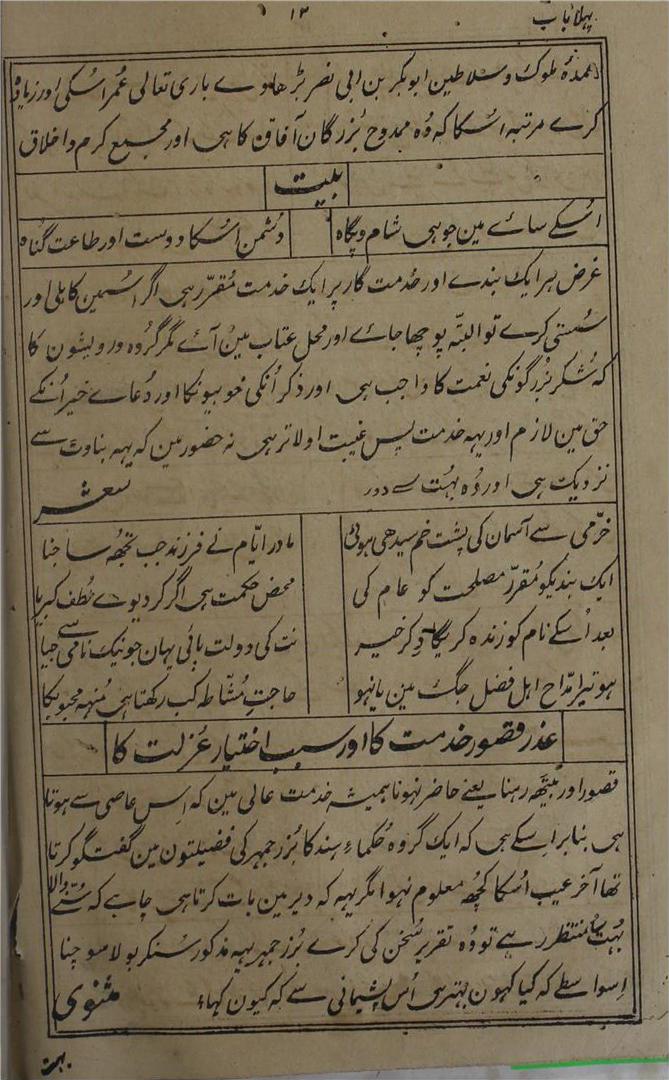 پہلا باب
۱۳
عمدۂ ملوک و سلاطین ابوبکر بن ابی نصر بڑھاوے باری تعالی عُمر اُسکی اور زیادہ
کرے مرتبہ اُسکا کہ وُہ ممدوح بُزرگان آفاق کا ہی اور مجمع کرم و اخلاق
بیت
اُسکے سائے مین جو ہی شام و پگاہ
دُشمن اُسکا دوست اور طاعت گُناہ
غرض ہر ایک بندے اور خدمت گار پر ایک خدمت مُقرّر ہی اگر اُسمین کاہلی اور
سُستی کرے تو البتّہ پوچھا جائے اور محل عتاب مین آئے مگر گروہ درویشون کا
کہ شُکر بُزرگونکی نعمت کا واجب ہی اور ذکر اُنکی خوبیونکا اور دُعاے خیر اُنکے
حق مین لازم اور یہہ خدمت پس غیبت اولاتر ہی نہ حضور مین کہ یہہ بناوٹ سے
نزدیک ہی اور وُہ بہُت سے دور
شعر
خرّمی سے آسمان کی پشت خم سیدھی ہوئی
مادر ایّام نے فرزند جب تجھہ سا جنا
ایک بندیکو مُقرّر مصلحت کو عام کی
محض حکمت ہی اگر کر دیوے لُطف کبریا
بعد اُسکے نام کو زندہ کریگا ذکر خیر
نت کی دولت پائی یہان جو نیک نامی سے جیا
ہو تیرا مدّاح اہل فضل جگ مین یا نہو
حاجتِ مُشّاطہ کب رکھتا ہی مُنہہ محبوبکا
عذر قصور خدمت کا اور سبب اختیار عُزلت کا
قصور اور بیٹھہ رہنا یعنے حاضر نہونا ہمیشہ خدمت عالی مین کہ اِس عاصی سے ہوتا
ہی بنا بر اِسکے ہی کہ ایک گروہ حُکماءِ ہند کا بُزرجمہر کی فضیلتون مین گفتگو کرتا
تھا آخر عیب اُسکا کُچھہ معلوم نہوا مگر یہہ کہ دیر مین بات کرتا ہی چاہے کہ سُننے والا
بہُت سا منتظر رہے تو وُہ تقریر سُخن کی کرے بُزرجمہر یہہ مذکور سُنکر بولا سوچنا
اِسواسطے کہ کیا کہون بہتر ہی اُس پشیمانی سے کہ کیون کہا
مثنوی
بہت